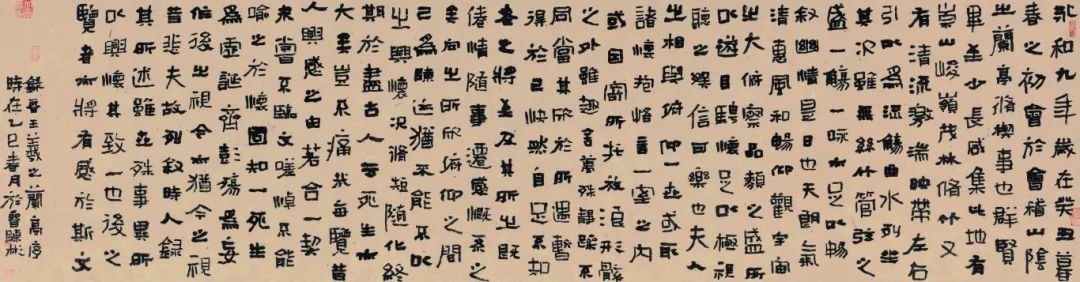 永和九年歲在癸丑暮
春之初會於會稽山陰
之蘭亭脩禊事也群賢
畢至少長咸集此地有
崇山峻嶺茂林脩竹又
有清流激湍映帶左右
引以為流觴曲水列坐
其次雖無絲竹管弦之
盛一觴一詠亦足以暢
敘幽情是日也天朗氣
清惠風和暢仰觀宇宙
之大俯察品類之盛所
以遊目騁懷足以極視
聽之娛信可樂也夫人
之相與俯仰一世或取
諸懷抱悟言一室之內
或因寄所托放浪形骸
之外雖趣舍萬殊靜躁不
同當其欣於所遇暫
得於己快然自足不知
老之將至及其所之既
倦情隨事遷感慨系之
矣向之所欣俯仰之間
已為陳迹猶不能不以
之興懷況脩短隨化終
期於盡古人云死生
大矣豈不痛哉每覽昔
人興感之由若合一契
未嘗不臨文嗟悼不能
喻之於懷固知一死生
為虛誕齊彭殤為妄
作後之視今亦猶今之視
昔悲夫故列敘時人錄
其所述雖世殊事異所
以興懷其致一也後之
覽者亦將有感於斯文
錄晉王羲之蘭亭序
時在乙巳春月於